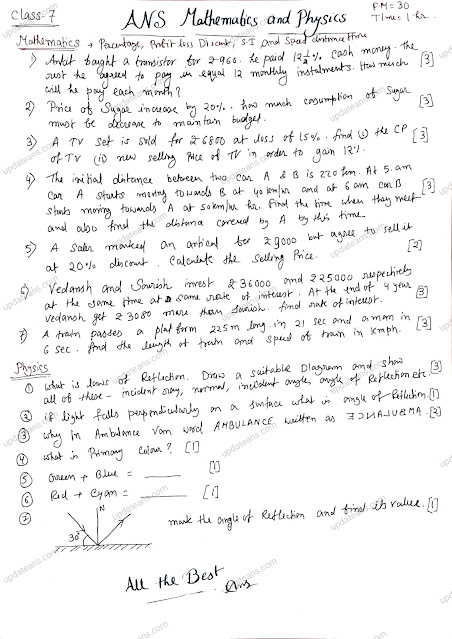 Class-7
ANS Mathematics and Physics
FM = 30
Time = 1 hr.
Mathematics → Pecentage, Profit loss Discont, S.I and Speed distance time
1) Ankit baught a transistor for ₹960. he paid 12½% Cash money. The
rest he agreed to pay in equal 12 monthly instalments. How much
will he pay each month? [3]
2) Price of Sugar increase by 20%. how much consumption of Sugar
must be decrease to maintain budget. [3]
3) A TV set is sold for ₹6800 at loss of 15%. find (i) the CP
of TV (ii) new selling Price of TV in order to gain 12% [3]
4) The initial distance between two car A & B is 220 km. At 5. am
Car A starts moving towards B at 40 km/hr and at 6 am car B
starts moving towards A at 50 km/hr. find the time when they meet
and also find the distance covered by A by this time. [3]
5) A saler marked an artical for ₹9000 but agree to sell it
at 20% discount. Calculate the Selling Price. [2]
6) Vedansh and Sourish invest ₹36000 and ₹25000 respectively
at the same time at same rate of interest. At the end of 4 year
Vedansh get ₹3080 more than Sourish. find rate of interest. [3]
7) A train passes a platform 225m long in 21 sec and a man in
6 sec. find the length of train and speed of train in kmph. [3]
Physics
① What is laws of Reflection. Draw a suitable Diagram and show
all of these - incident ray, normal, incident angle, angle of Reflection etc. [3]
② if light falls perpendicularly on a surface what is angle of Reflection. [1]
③ why in Ambulance Van word AMBULANCE written as ƎƆИA⅃UᗺMA. [2]
④ what is Primary Colour? [1]
⑤ Green + Blue = [1]
⑥ Red + Cyan = [1]
⑦ N
30°
mark the angle of Reflection and find its value. [1]
All the Best
Ans
updateans.com